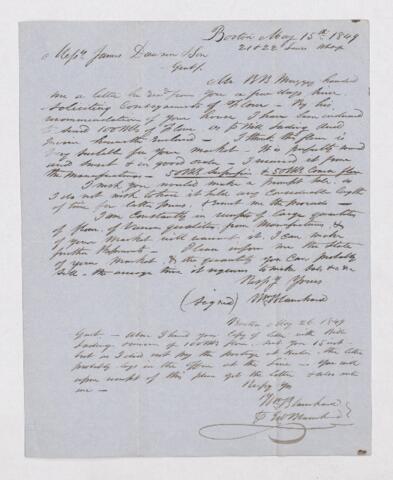 Boston May 15th 1849
21 & 22 Wharf
Messrs James Dawson & Son
Gents.
Mr B B Mussey handed
me a letter he recd from you a few days since
soliciting Consignments of Flour - By his
recommendation of your house I have been induced
to send 100 Bbls of Flour as pr Bill Lading and
Invoice herewith Enclosed - I think this flour is
suitable for your market - It is perfectly sound
and Sweet & in good order - I received it from
the manufacturers - 50 Bbls Superfine & 50 Bbls flour
I wish you would make a prompt sale, as
I do not wish to have it lay any Considerable length
of time for better prices, & remit me the proceeds -
I am Constantly in receipt of large quantities
of flour, of Various qualities from Manufacturers, &
if your Market will warrant it, I can make
further Shipments. Please inform me the State
of your Market, & the quantity you can probably
Sell - the average time it requires to make Sales & &c
Respy Yours
(Signed) Wm Blanchard
Boston May 26 1849
Gents - Above I hand you Copy of letter with Bill
Lading & invoice of 100 Bbls flour sent you 15 inst
but as I did not Pay the postage at Boston, the letter
probably lays in the office at the - You will
upon receipt of this please get the letter & advise
me -
Respy Yrs
Wm Blanchard
Blanchard